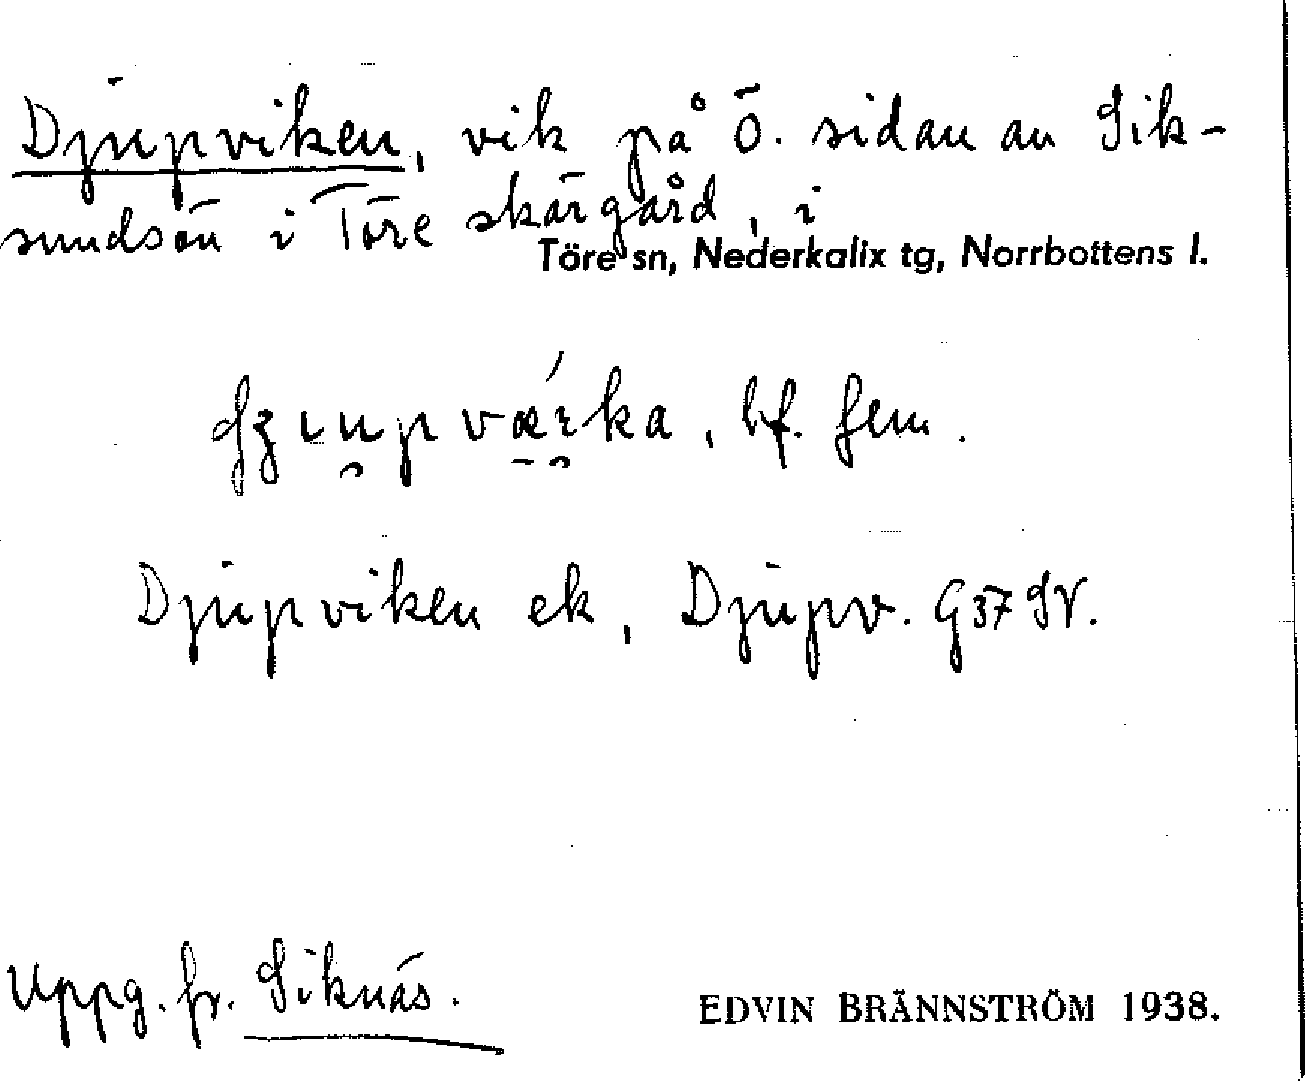 Djupviken, vik på Ö. sidan av Sik-
sundsön i Töre skärgård, i
Töre sn, Nederkalix tg, Norrbottens l.
bf. fem.
Djupviken ek, Djupv. G37 SV.
Uppg. fr. Siknäs.
EDVIN BRÄNNSTRÖM 1938.